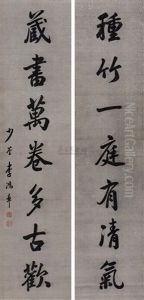 種竹一庭有清氣
藏書萬卷多古歡
少荃李鴻章